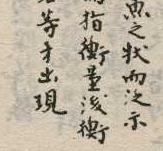 魚之状而決示
指衡量後衡
等才出現